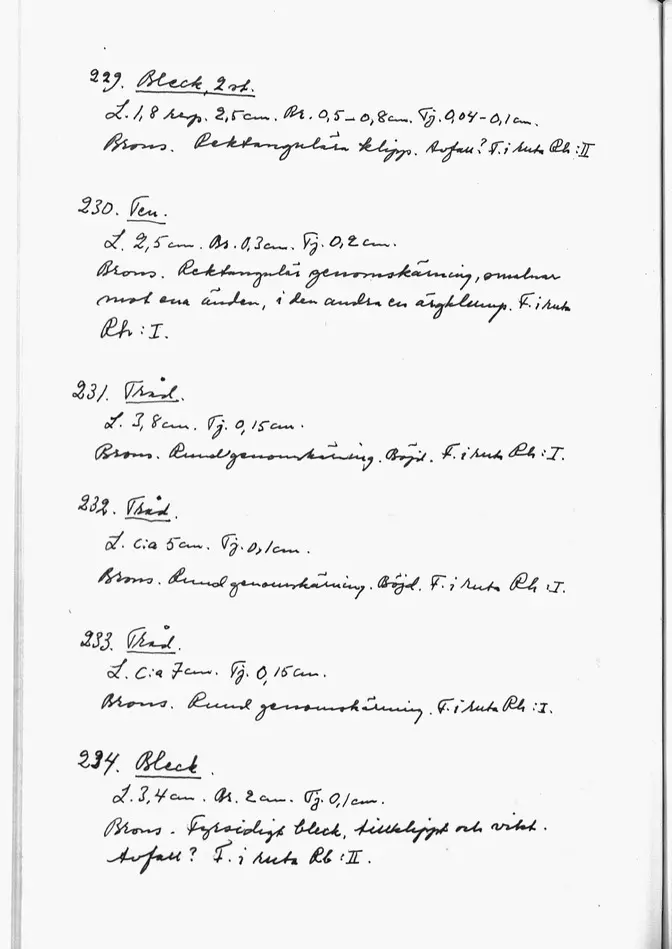 229. Bleck, 2 st.
L. 1,8 resp. 2,5 cm. Br. 0,5-0,8 cm. Tj. 0,04-0,1 cm.
Brons. Rektangulära klipp. Avfall? F. i ruta Rh:II
230. Ten.
L. 2,5 cm. Br. 0,3 cm. Tj. 0,2 cm.
Brons. Rektangulär genomskärning, smalnar
mot ena änden, i den andra en ärgklump. F. i ruta
Rh:I.
231. Tråd.
L. 3,8 cm. Tj. 0,15 cm.
Brons. Rund genomskärning. Böjd. F. i ruta Rh:I.
232. Tråd.
L. c:a 5 cm. Tj. 0,1 cm.
Brons. Rund genomskärning. Böjd. F. i ruta Rh:I.
233. Tråd.
L. c:a 7 cm. Tj. 0,15 cm.
Brons. Rund genomskärning. F. i ruta Rh:I.
234. Bleck.
L. 3,4 cm. Br. 2 cm. Tj. 0,1 cm.
Brons. Fyrsidigt bleck, tillklippt och vikt.
Avfall? F. i ruta Rb:II.